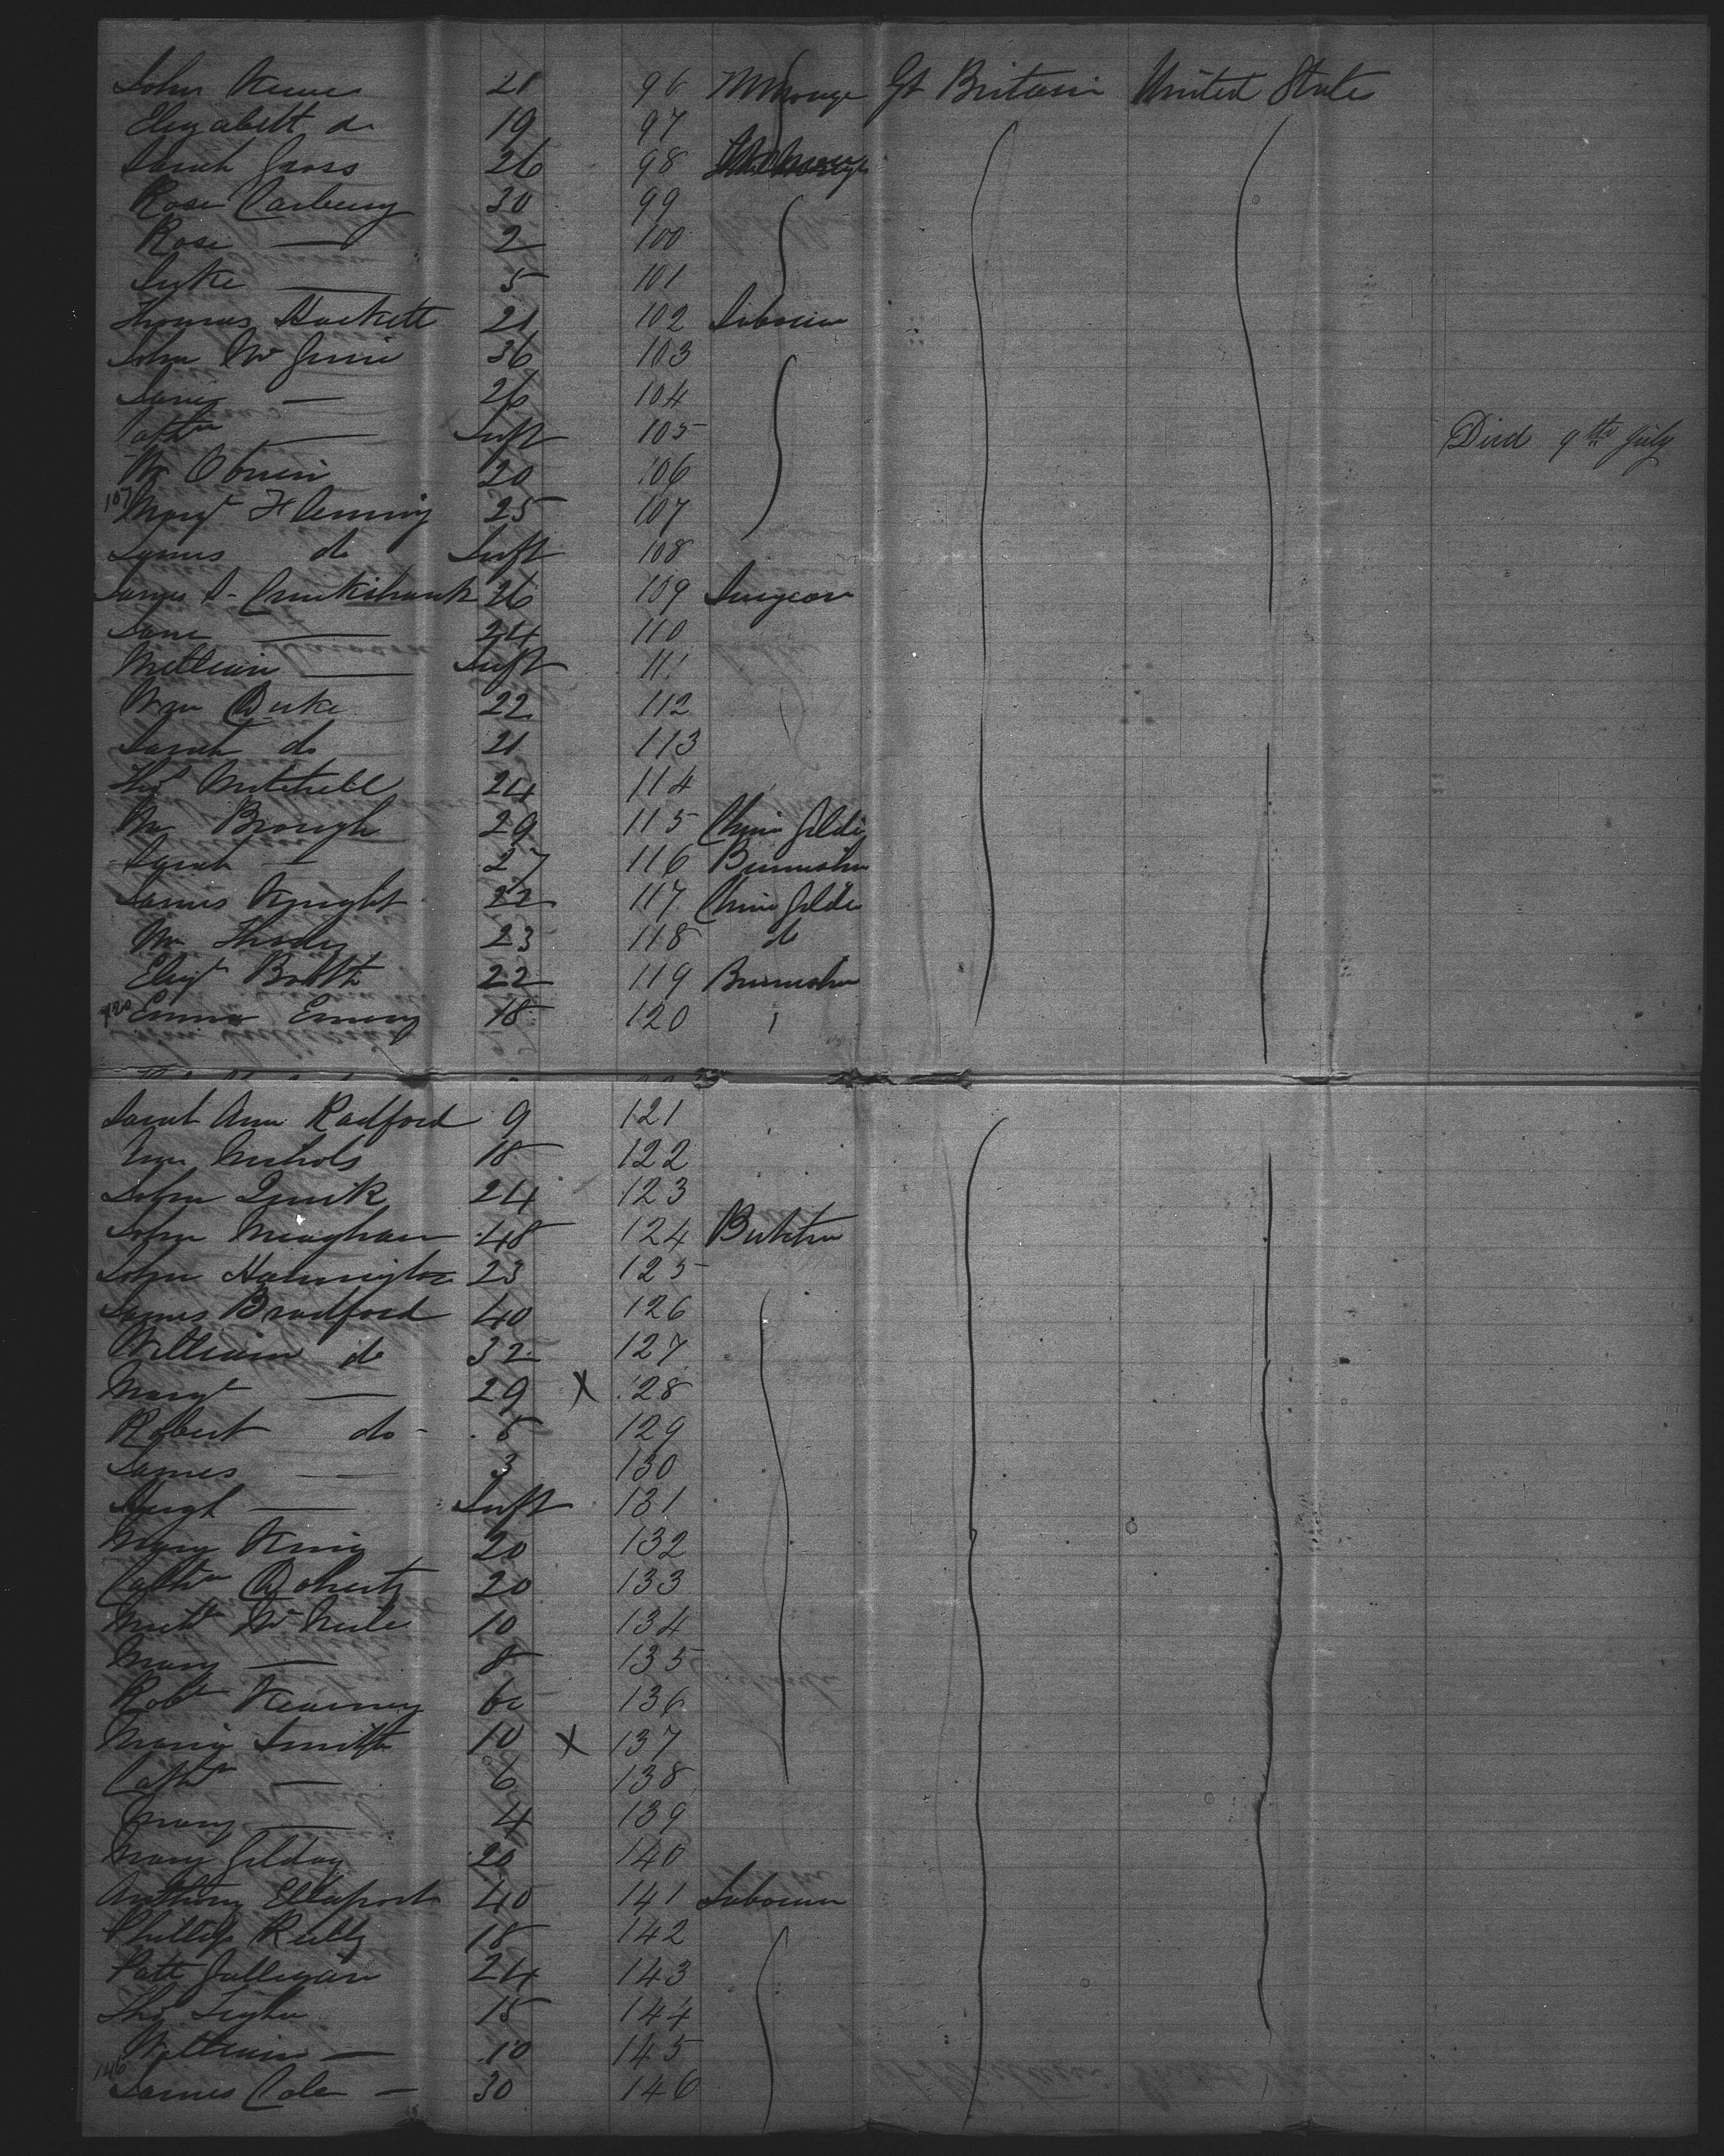 John 21 96 Gt Britain United States
Elizabeth do 19 97
Sarah Gross 26 98
Rose Carberry 30 99
Rose — 2 100
Luke — 5 101
Thomas Hackett 21 102 Laborer
John Mc 36 103
— 26 104
Cathn — Inft 105 Died 9th July
Wm Obrien 20 106
107 Margt Fleming 25 107
James do Inft 108
James D. Cruikshank 26 109 Surgeon
Jane — 24 110
William — Inft 111
Wm Burke 22 112
Sarah do 21 113
Thos Mitchell 24 114
Wm Brough 29 115 China Gilder
Sarah — 27 116 Burnisher
James Knight 22 117 China Gilder
Wm 23 118 do
Elizt Booth 22 119 Burnisher
120 Emma Emery 18 120
Sarah Ann Radford 9 121
Ann Nichols 18 122
John Quirk 24 123
John Meaghan 48 124 Butcher
John Harrington 23 125
James Bradford 40 126
William do 32 127
Margt — 29 X 128
Robert do 8 129
James — 3 130
Hugh — Inft 131
Mary King 20 132
Cathn Doherty 20 133
Mc 10 134
Mary — 8 135
Robt Kearney 60 136
Maria Smith 10 X 137
Cathn — 6 138
Mary — 4 139
Mary Gilday 20 140
Anthony 40 141 Laborer
Phillip Reilly 18 142
Patt Galligan 24 143
Thos Tighe 15 144
William — 10 145
146 James Cole — 30 146